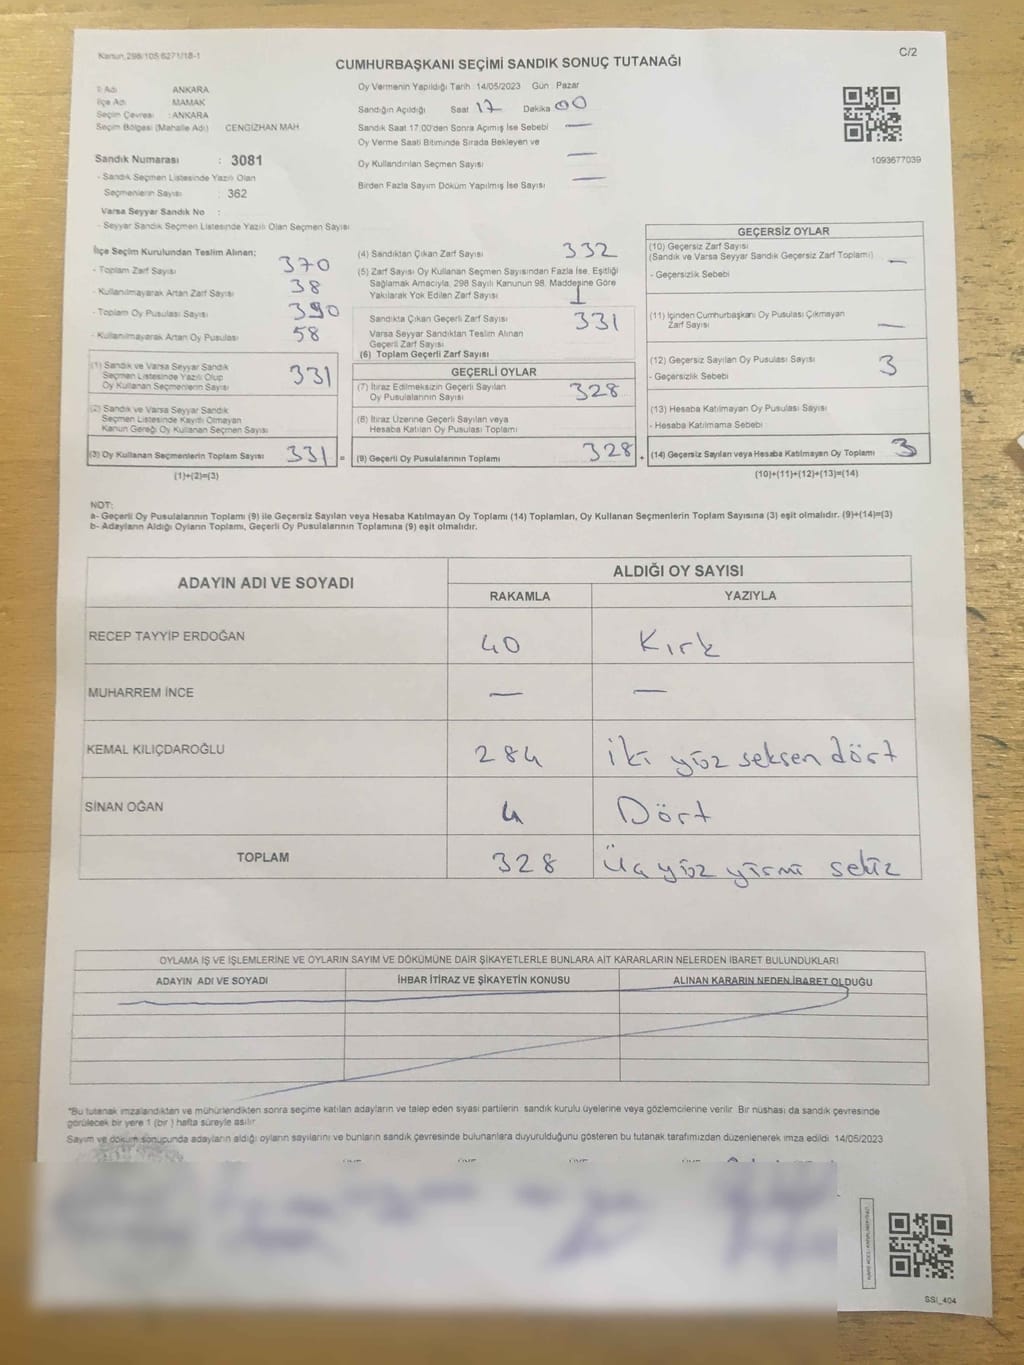 Kanun,298/105 6271/18-1
C/2
CUMHURBAŞKANI SEÇİMİ SANDIK SONUÇ TUTANAĞI
İl Adı ANKARA
İlçe Adı MAMAK
Seçim Çevresi : ANKARA
Seçim Bölgesi (Mahalle Adı) CENGİZHAN MAH.
Sandık Numarası : 3081
- Sandık Seçmen Listesinde Yazılı Olan
Seçmenlerin Sayısı : 362
Varsa Seyyar Sandık No :
- Seyyar Sandık Seçmen Listesinde Yazılı Olan Seçmen Sayısı
Oy Vermenin Yapıldığı Tarih : 14/05/2023 Gün : Pazar
Sandığın Açıldığı Saat 17 Dakika 00
Sandık Saat 17:00'den Sonra Açılmış İse Sebebi —
Oy Verme Saati Bitiminde Sırada Bekleyen ve
Oy Kullandırılan Seçmen Sayısı —
Birden Fazla Sayım Döküm Yapılmış İse Sayısı —
1093677039
İlçe Seçim Kurulundan Teslim Alınan;
- Toplam Zarf Sayısı 370
- Kullanılmayarak Artan Zarf Sayısı 38
- Toplam Oy Pusulası Sayısı 390
- Kullanılmayarak Artan Oy Pusulası 58
(1) Sandık ve Varsa Seyyar Sandık
Seçmen Listesinde Yazılı Olup
Oy Kullanan Seçmenlerin Sayısı 331
(2) Sandık ve Varsa Seyyar Sandık
Seçmen Listesinde Kaydı Olmayan
Kanun Gereği Oy Kullanan Seçmen Sayısı
(3) Oy Kullanan Seçmenlerin Toplam Sayısı 331 =
(1)+(2)=(3)
(4) Sandıktan Çıkan Zarf Sayısı 332
(5) Zarf Sayısı Oy Kullanan Seçmen Sayısından Fazla İse, Eşitliği
Sağlamak Amacıyla, 298 Sayılı Kanunun 98. Maddesine Göre
Yakılarak Yok Edilen Zarf Sayısı 1
Sandıkta Çıkan Geçerli Zarf Sayısı 331
Varsa Seyyar Sandıktan Teslim Alınan
Geçerli Zarf Sayısı
(6) Toplam Geçerli Zarf Sayısı
GEÇERLİ OYLAR
(7) İtiraz Edilmeksizin Geçerli Sayılan
Oy Pusulalarının Sayısı 328
(8) İtiraz Üzerine Geçerli Sayılan veya
Hesaba Katılan Oy Pusulası Toplamı
(9) Geçerli Oy Pusulalarının Toplamı 328 +
GEÇERSİZ OYLAR
(10) Geçersiz Zarf Sayısı
(Sandık ve Varsa Seyyar Sandık Geçersiz Zarf Toplamı) —
- Geçersizlik Sebebi
(11) İçinden Cumhurbaşkanı Oy Pusulası Çıkmayan
Zarf Sayısı —
(12) Geçersiz Sayılan Oy Pusulası Sayısı 3
- Geçersizlik Sebebi
(13) Hesaba Katılmayan Oy Pusulası Sayısı
- Hesaba Katılmama Sebebi
(14) Geçersiz Sayılan veya Hesaba Katılmayan Oy Toplamı 3
(10)+(11)+(12)+(13)=(14)
NOT:
a- Geçerli Oy Pusulalarının Toplamı (9) ile Geçersiz Sayılan veya Hesaba Katılmayan Oy Toplamı (14) Toplamları, Oy Kullanan Seçmenlerin Toplam Sayısına (3) eşit olmalıdır. (9)+(14)=(3)
b- Adayların Aldığı Oyların Toplamı, Geçerli Oy Pusulalarının Toplamına (9) eşit olmalıdır.
ADAYIN ADI VE SOYADI ALDIĞI OY SAYISI
RAKAMLA YAZIYLA
RECEP TAYYİP ERDOĞAN 40 Kırk
MUHARREM İNCE — —
KEMAL KILIÇDAROĞLU 284 iki yüz seksen dört
SİNAN OĞAN 4 Dört
TOPLAM 328 Üç yüz yirmi sekiz
OYLAMA İŞ VE İŞLEMLERİNE VE OYLARIN SAYIM VE DÖKÜMÜNE DAİR ŞİKAYETLERLE BUNLARA AİT KARARLARIN NELERDEN İBARET BULUNDUKLARI
ADAYIN ADI VE SOYADI İHBAR İTİRAZ VE ŞİKAYETİN KONUSU ALINAN KARARIN NEDEN İBARET OLDUĞU
"Bu tutanak imzalandıktan ve mühürlendikten sonra seçime katılan adayların ve talep eden siyasi partilerin sandık kurulu üyelerine veya gözlemcilerine verilir. Bir nüshası da sandık çevresinde
görülecek bir yere 1 (bir ) hafta süreyle asılır.
Sayım ve döküm sonucunda adayların aldığı oyların sayılarını ve bunların sandık çevresinde bulunanlara duyurulduğunu gösteren bu tutanak tarafımızdan düzenlenerek imza edildi. 14/05/2023
SSİ_404